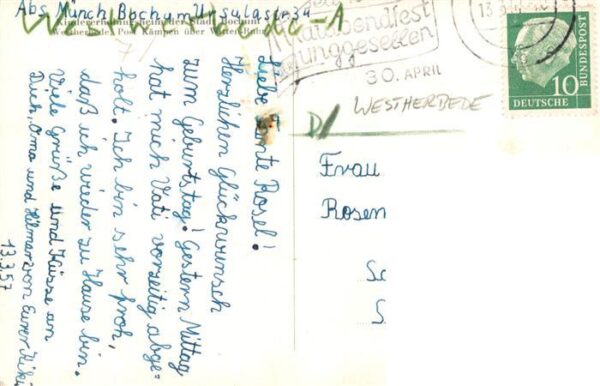 Abs. Münch Bochum Ursulastr. 34
Westherbede-A
Kindererholungsheim der Stadt Bochum
Westherbede, Post Kämpen über Witten-Ruhr
Liebe Tante Rosel!
Herzlichen Glückwunsch
zum Geburtstag! Gestern Mittag
hat mich Vati vorzeitig abge=
holt. Ich bin sehr froh,
daß ich wieder zu Hause bin.
Viele Grüße und Küsse an
Dich, Oma und Hilmar von Eurer Kiki
13.3.57
Maiabendfest
Junggesellen
30. APRIL
10
DEUTSCHE
BUNDESPOST
D/ WESTHERBEDE
Frau
Rosen
Sc
S